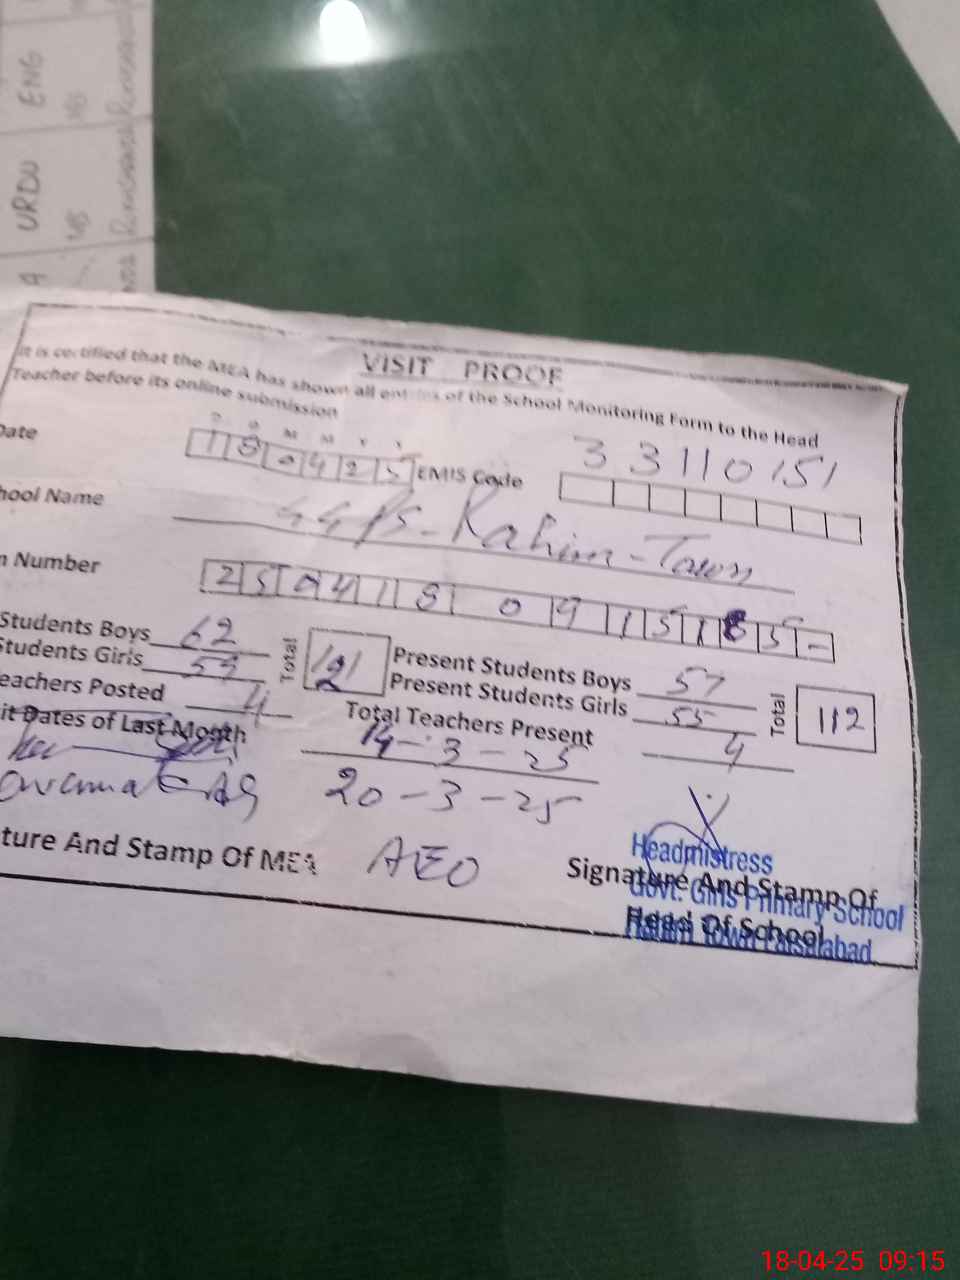 URDU ENG
VISIT PROOF
It is certified that the MEA has shown all entries of the School Monitoring Form to the Head
Teacher before its online submission
D D M M Y Y
Date 180425 EMIS Code 33110151
hool Name GGPS-Rahim-Town
n Number 250418 0915
Students Boys 62 Total 121 Present Students Boys 57 Total 112
Students Girls 59 Present Students Girls 55
eachers Posted 4 Total Teachers Present 4
it Dates of Last Month 14-3-25
20-3-25
ture And Stamp Of MEA AEO Signature And Stamp Of
Head Of School
Headmistress
Govt. Girls Primary School
Rahim Town Faisalabad
18-04-25 09:15